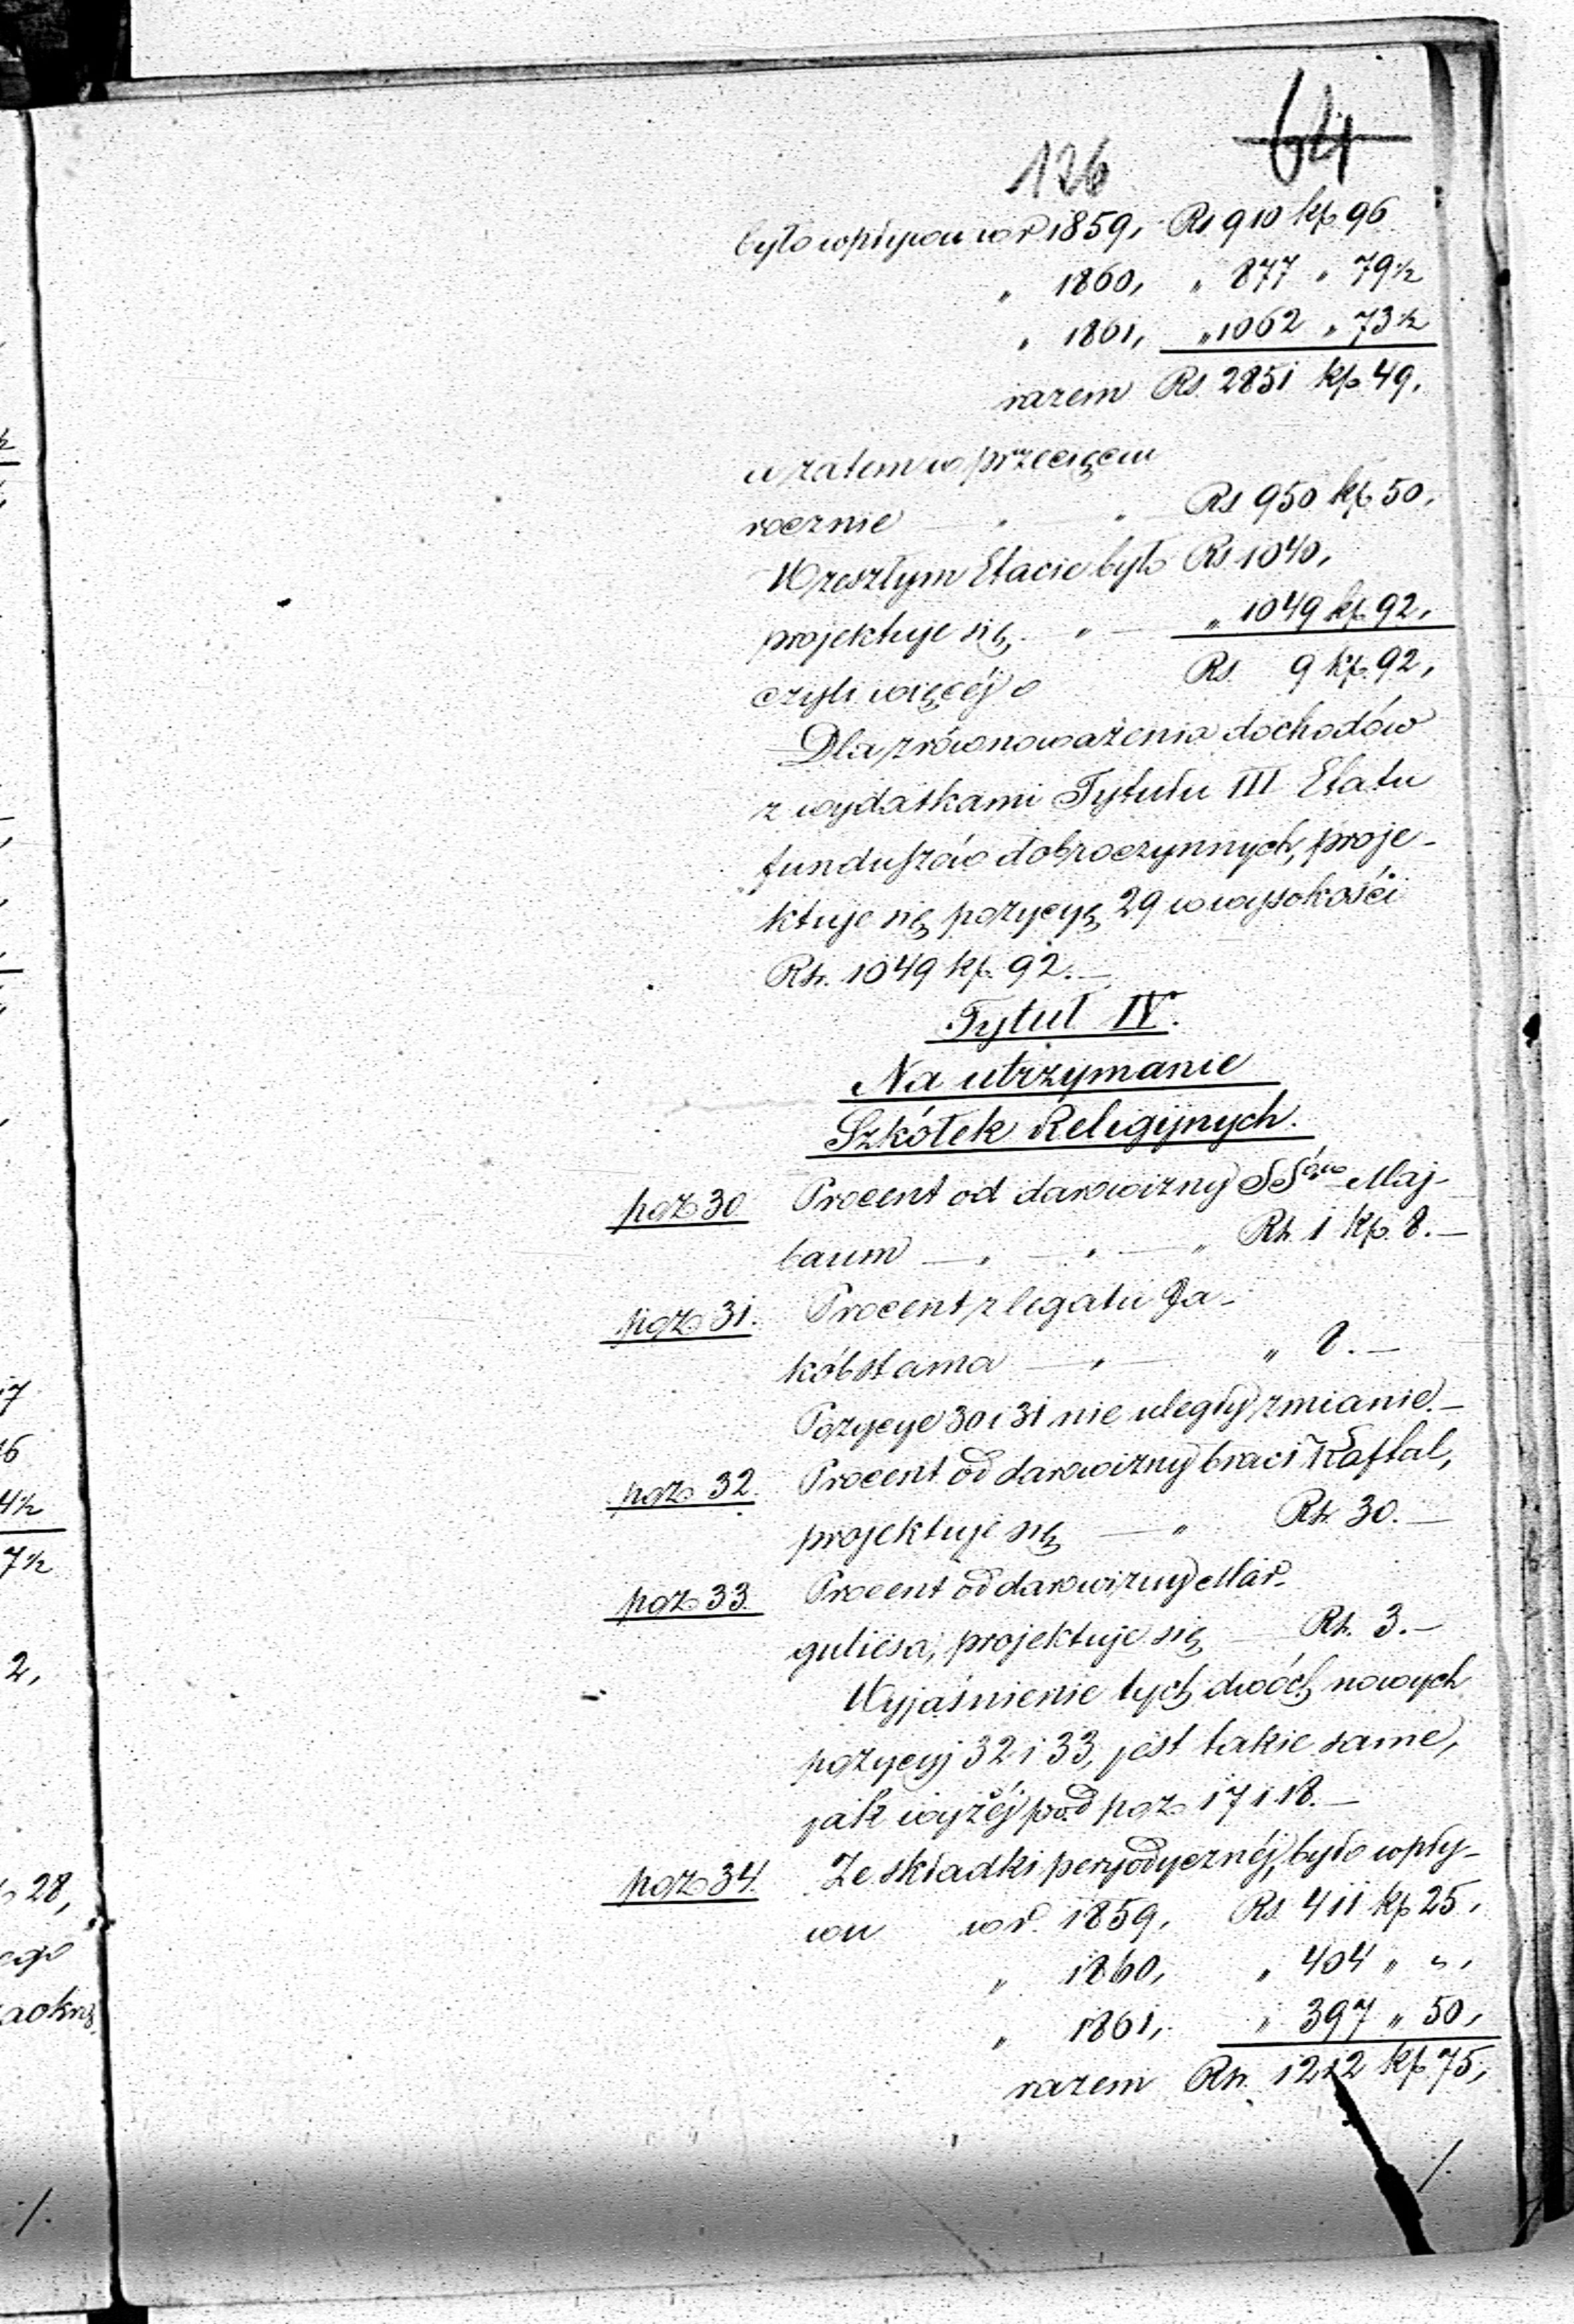 126 64
było wpływu w r. 1859, Rs 910 kp 96
" 1860, " 877 " 79½
" 1861, " 1062 " 73½
razem Rs. 2851 kp 49,
a zatem w przecięciu
rocznie " " Rs 950 kp 50,
W zeszłym Etacie było Rs 1040,
projektuje się " " 1049 kp 92,
czyli więcéj o Rs. 9 kp. 92,
Dla zrównoważenia dochodów
z wydatkami Tytułu III Etatu
funduszów dobroczynnych, proje-
ktuje się pozycyę 29 w wysokości
Rs. 1049 kp. 92.—
Tytuł IV.
Na utrzymanie
Szkółek Religijnych.
poz 30 Procent od darowizny SSów Maj-
baum — " — " — " Rs. 1 kp. 8.—
poz. 31. Procent z legatu Ja-
kóbstama — " — " 8.—
Pozycye 30 i 31 nie uległy zmianie.—
poz. 32. Procent od darowizny braci Kaftal,
projektuje się — " Rs. 30.—
poz 33. Procent od darowizny Mar-
guliesa, projektuje się — Rs. 3.—
Wyjaśnienie tych dwóch nowych
pozycyj 32 i 33, jest takie same,
jak wyżéj pod poz. 17 i 18.—
poz 34. Ze składki peryodycznéj, było wpły-
wu w r. 1859, Rs. 411 kp 25,
" 1860, " 404 " ",
" 1861, " 397 " 50,
razem Rs. 1212 kp. 75,
./.
7
6
4½
7½
2,
28,
ego
./.